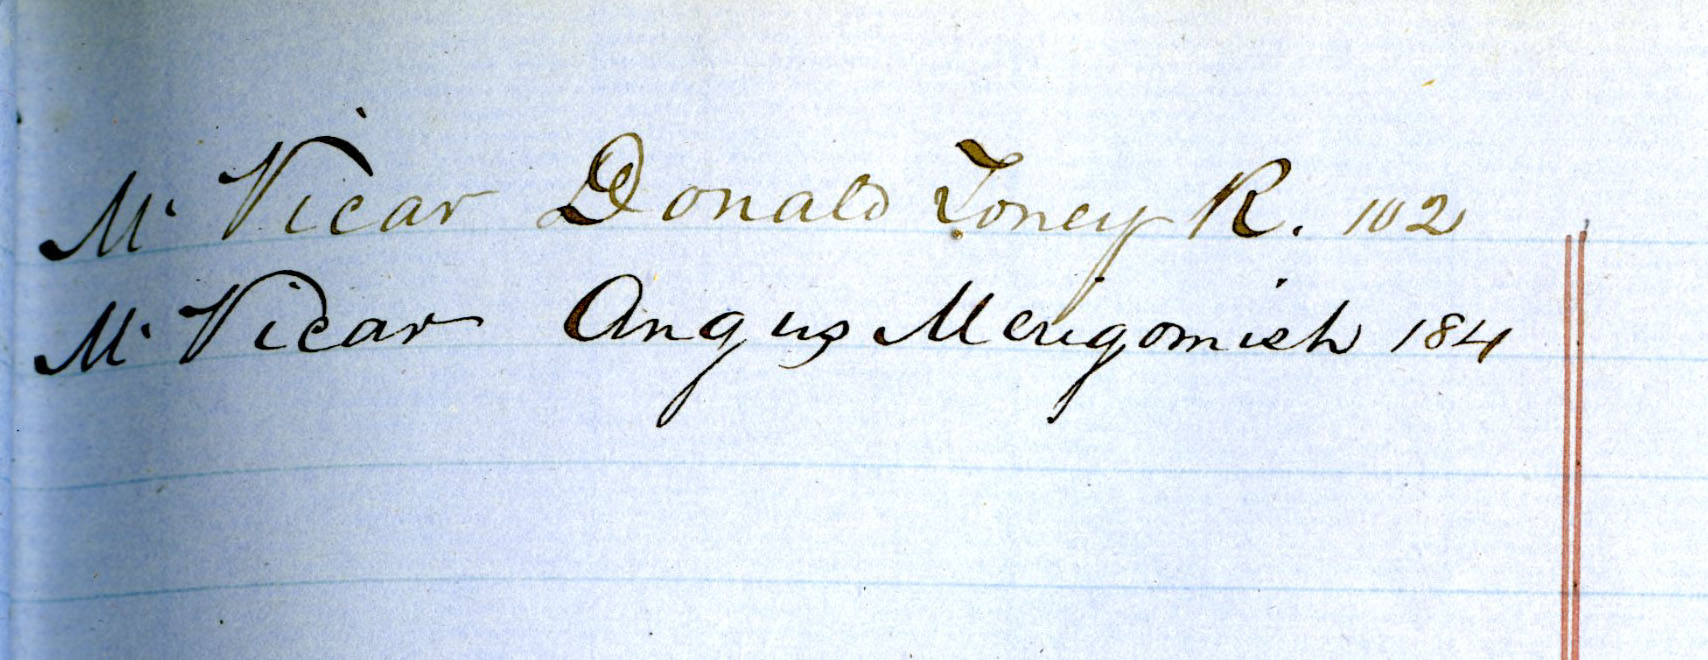 Mc Vicar Donald Toney R. 102
Mc Vicar Angus Merigomish 184